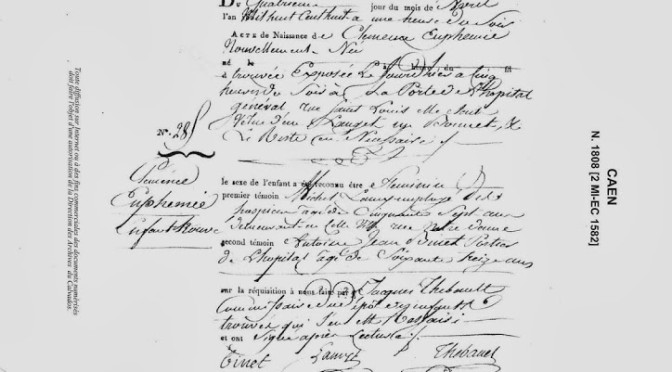 Du quatrième jour du mois de Avril
l'an Mil huit Cent huit a une heure du Soir
Acte de Naissance de Clemence Euphemie
Nouvellement Née
né le
trouvée Exposée Le jour d'hier a Cinq
heures du Soir à La Porte de L'hopital
général rue Saint Louis
Vêtue d'un Lauget un Bonnet, &
Le Reste
N.º 28
Clémence
Euphemie
Enfant trouvé
le sexe de l'enfant a été reconnu être féminin
premier témoin Michel Lauvey employé
hospices agé de Cinquante Sept ans
demeurant en Cette Ville rue Notre Dame
second témoin Antoine Jean Tinet Portier
de L'hopital agé de Soixante treize ans
sur la réquisition à nous faite par Jacques Thebault
Commissaire au dépot des enfants
trouvés qui
et ont Signé après Lecture
Tinet Thebault
CAEN
N. 1808 [2 MI-EC 1582]
Toute diffusion sur Internet ou à des fins commerciales des documents numérisés
doit faire l'objet d'une autorisation de la Direction des Archives du Calvados.